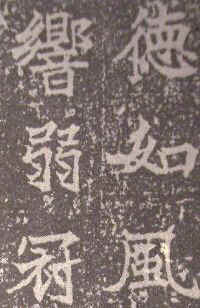 德如風
響弱冠